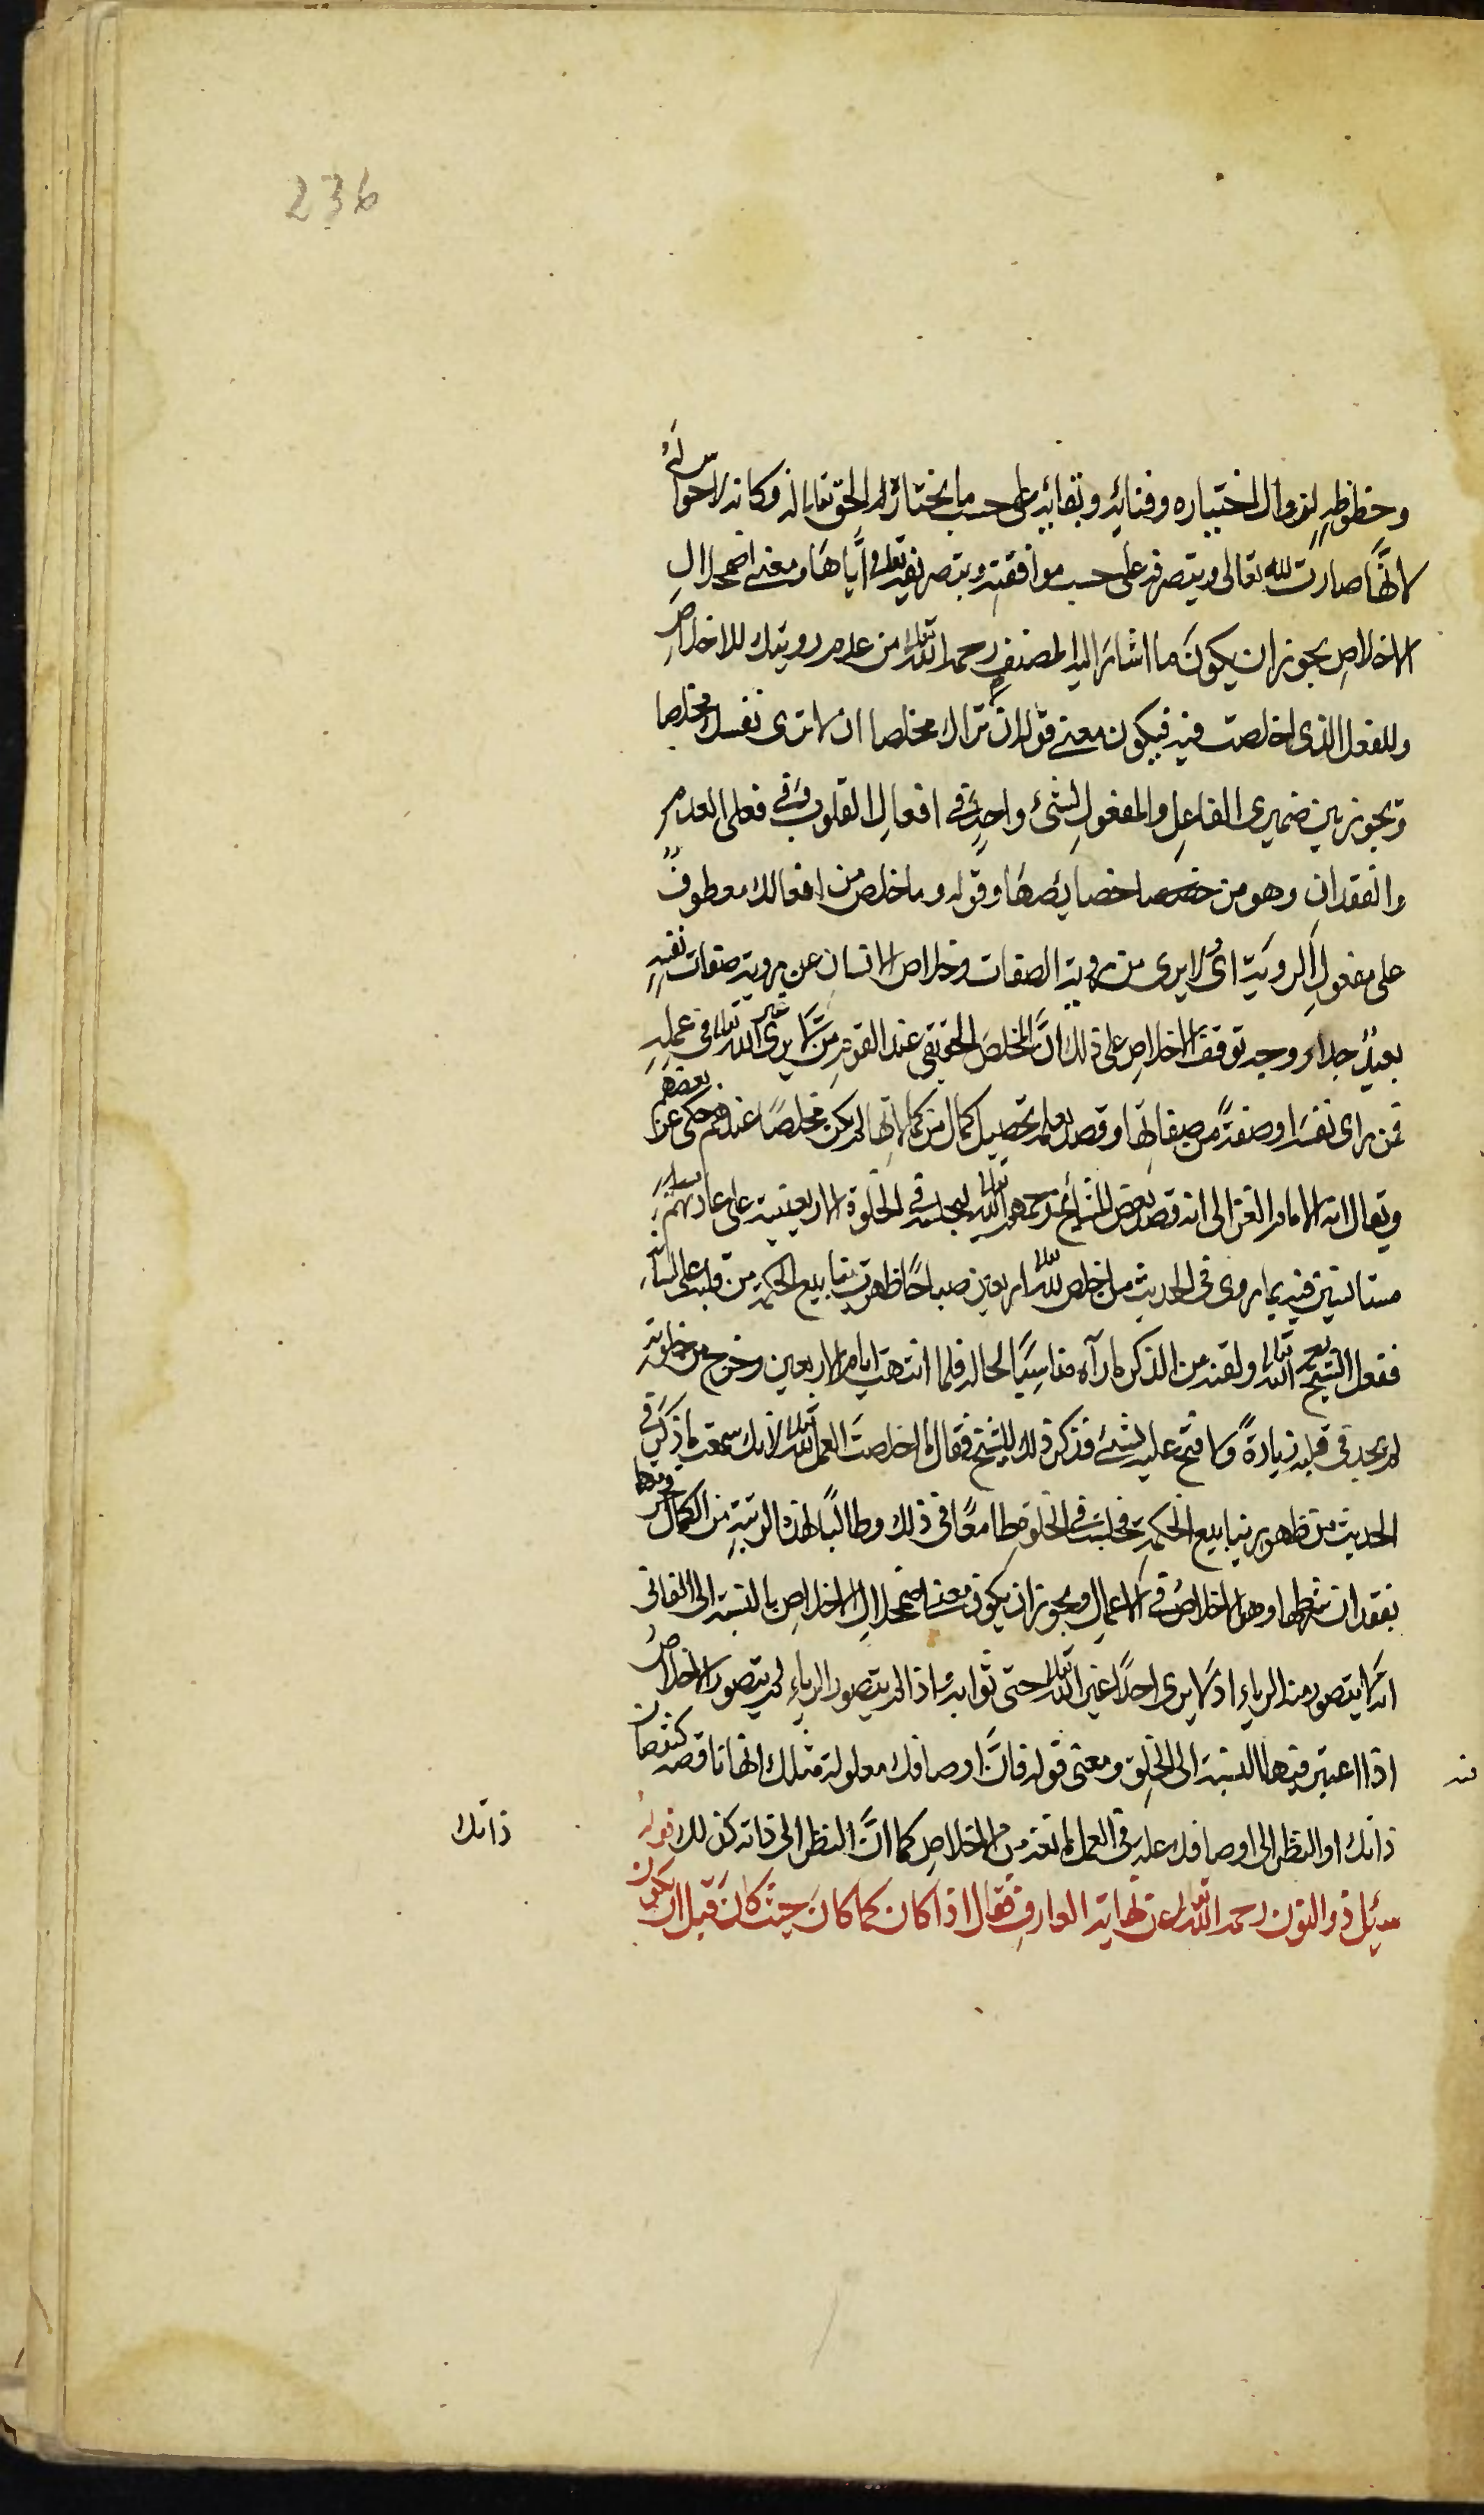 236
وحظوظه لزوال اختياره وفنائه وبقائه على حسب ما يختاره الحق تعالى له فكانه لا حوالئه
لانها صارت لله تعالى ويتصرف على حسب موافقته وبتصريفه تعالى اياها ومعنى اضمحلال
الاخلاص يجوز ان يكون ما اشار اليه المصنف رحمه الله تعالى من عدم رويتك للاخلاص
وللفعل الذى اخلصت فيه فيكون معنى قوله ان لا تراك مخلصا ان لا ترى نفسك مخلصا
ويجوز بين ضميرى الفاعل والمفعول لشئ واحد فى افعال القلوب وفى فعلى العدم
والفقدان وهو من خصايصها وقوله وما خلص من افعالك معطوف
على مفعول الروية اى ولا يرى من روية الصفات وخلاص الانسان عن روية صفات نفسه
بعيد جدا ووجه توقف الاخلاص على ذلك ان المخلص الحقيقى عند القوم من لا يرى غير الله تعالى فى عمله
فمن راى نفسه او صفة من صفاتها وقصد بعلمه تحصيل كمال من كمالاتها لم يكن مخلصا عندهم حكى عن بعضهم
ويقال انه الامام الغزالى انه قصد بعض المشائخ رحمهم الله تعالى ليجلسه فى الخلوة الاربعينية على عادتهم
مستانسين فيه بما روى فى الحديث من اخلص لله تعالى اربعين صباحا ظهرت ينابيع الحكمة من قلبه على لسانه
ففعل الشيخ رحمه الله تعالى ولقنه من الذكر ما رآه مناسبا لحاله فلما انتهت ايام الاربعين وخرج من خلوته
لم يجد فى قلبه زيادة ولا فتح عليه بشئ فذكر ذلك للشيخ فقال ما اخلصت العمل لله تعالى لانك سمعت ما ذكر فى
الحديث من ظهور ينابيع الحكمة فجلست فى الخلوة طامعا فى ذلك وطالبا لهذه الرتبة من الكمال
بفقدان شرطها وهو الاخلاص فى الاعمال ويجوز ان يكون معنى اضمحلال الاخلاص بالنسبة الى الفانى
انه لا يتصور منه الرياء اذ لا يرى احدا غير الله تعالى حتى ثوابه واذا لم يتصور الرياء لم يتصور الاخلاص
اذا اعتبر فيها النسبة الى الخلق ومعنى قوله فان اوصافك معلولة مثلك انها ناقصة كنقصان
ذاتك او النظر الى اوصافك علة فى العمل مانعة من الاخلاص كما ان النظر الى ذاته كذلك قوله
سئل ذو النون رحمه الله تعالى عن نهاية العارف فقال اذا كان كما كان حيث كان قبل ان يكون
ذاتك